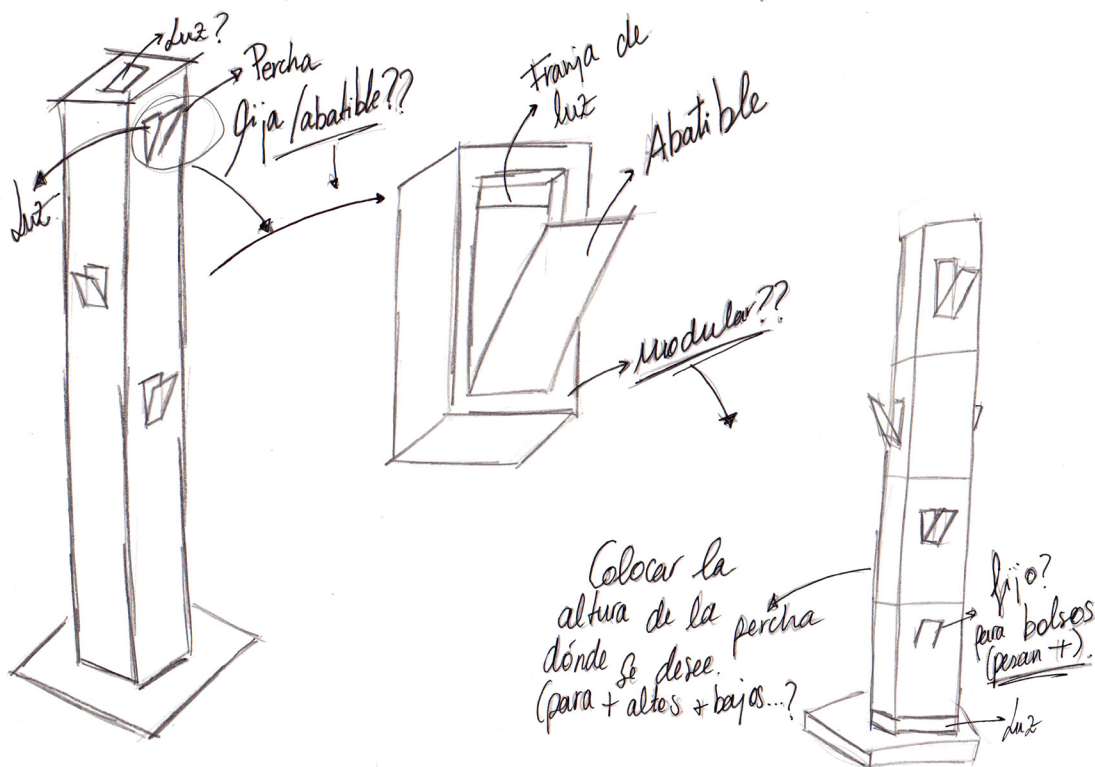 Luz?
Percha
fija/abatible??
Luz
Franja de
luz
Abatible
Modular??
Colocar la
altura de la percha
dónde se desee.
(para + altos + bajos...?
fijo?
para bolsos
(pesan +).
Luz